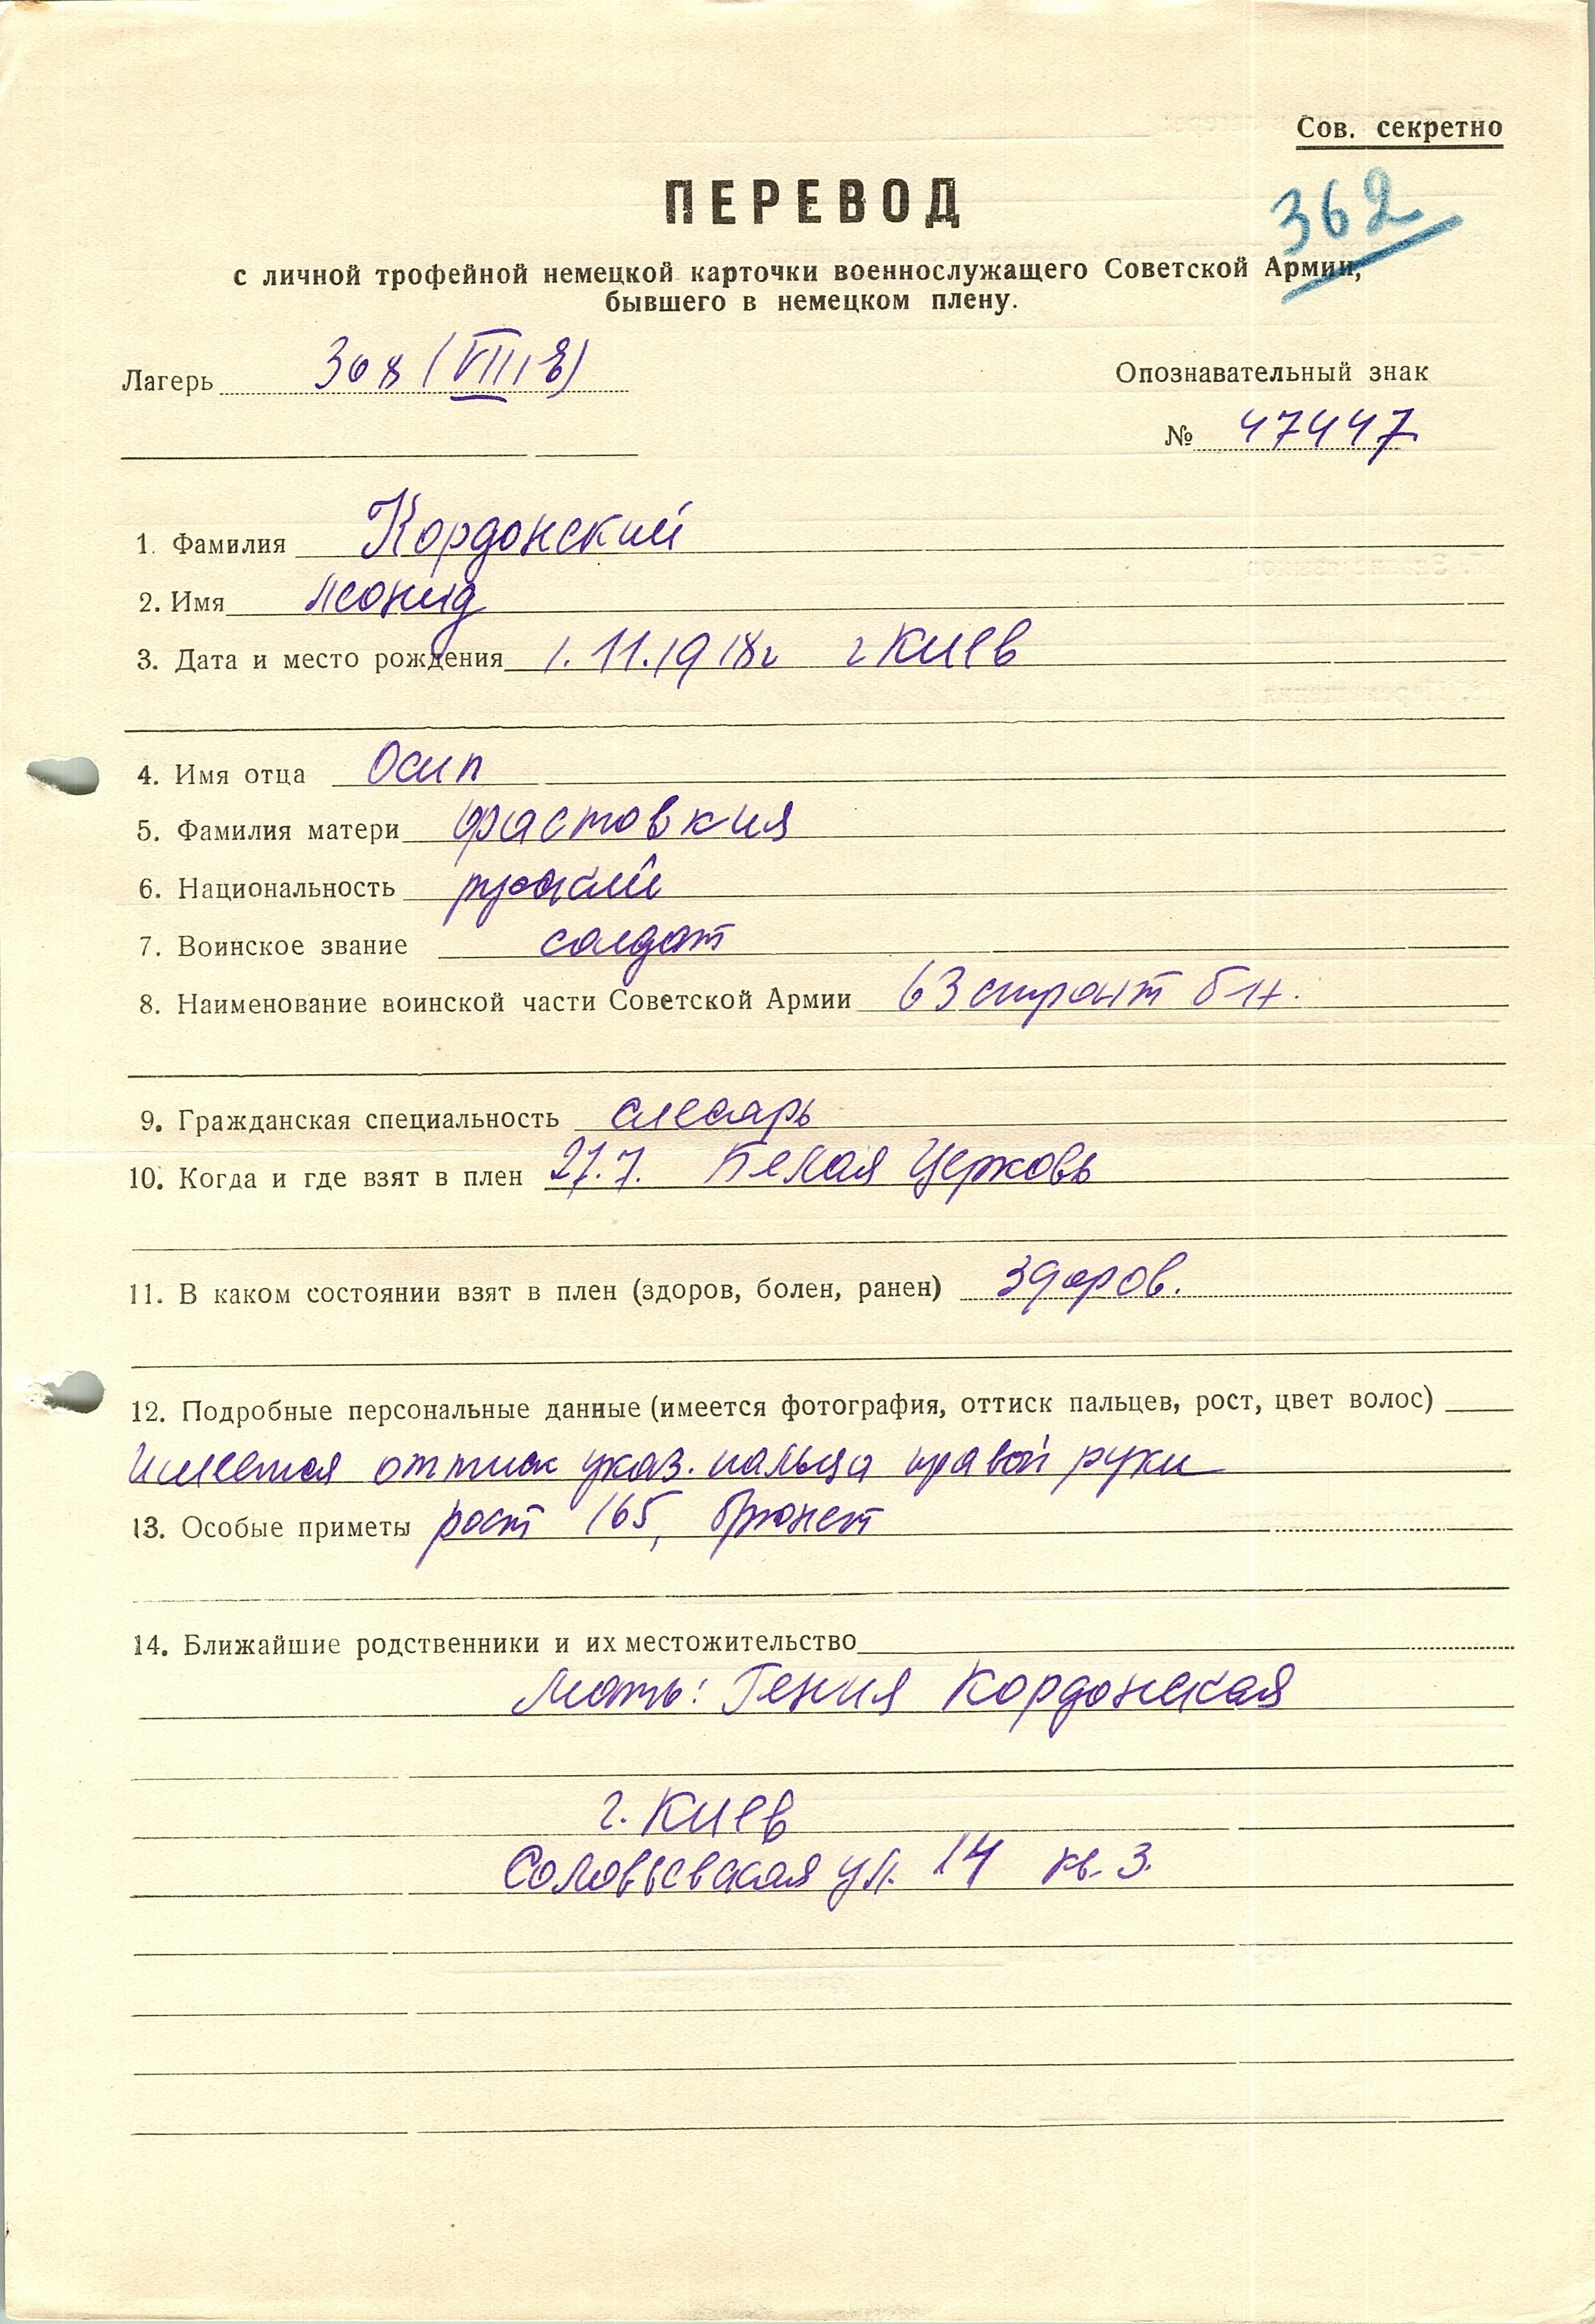 Сов. секретно
ПЕРЕВОД
362
с личной трофейной немецкой карточки военнослужащего Советской Армии,
бывшего в немецком плену.
Лагерь 308 (VIII Е)
Опознавательный знак
№ 47447
1. Фамилия Кордонский
2. Имя Леонид
3. Дата и место рождения 1.11.1918г г Киев
4. Имя отца Осип
5. Фамилия матери Фастовкия
6. Национальность русский
7. Воинское звание солдат
8. Наименование воинской части Советской Армии 63 строит б-н.
9. Гражданская специальность слесарь
10. Когда и где взят в плен 27.7. Белая Церковь
11. В каком состоянии взят в плен (здоров, болен, ранен) здоров.
12. Подробные персональные данные (имеется фотография, оттиск пальцев, рост, цвет волос)
Имеется оттиск указ. пальца правой руки
13. Особые приметы рост 165, брюнет
14. Ближайшие родственники и их местожительство
Мать: Гения Кордонская
г. Киев
Соловьевская ул. 14 кв. 3.